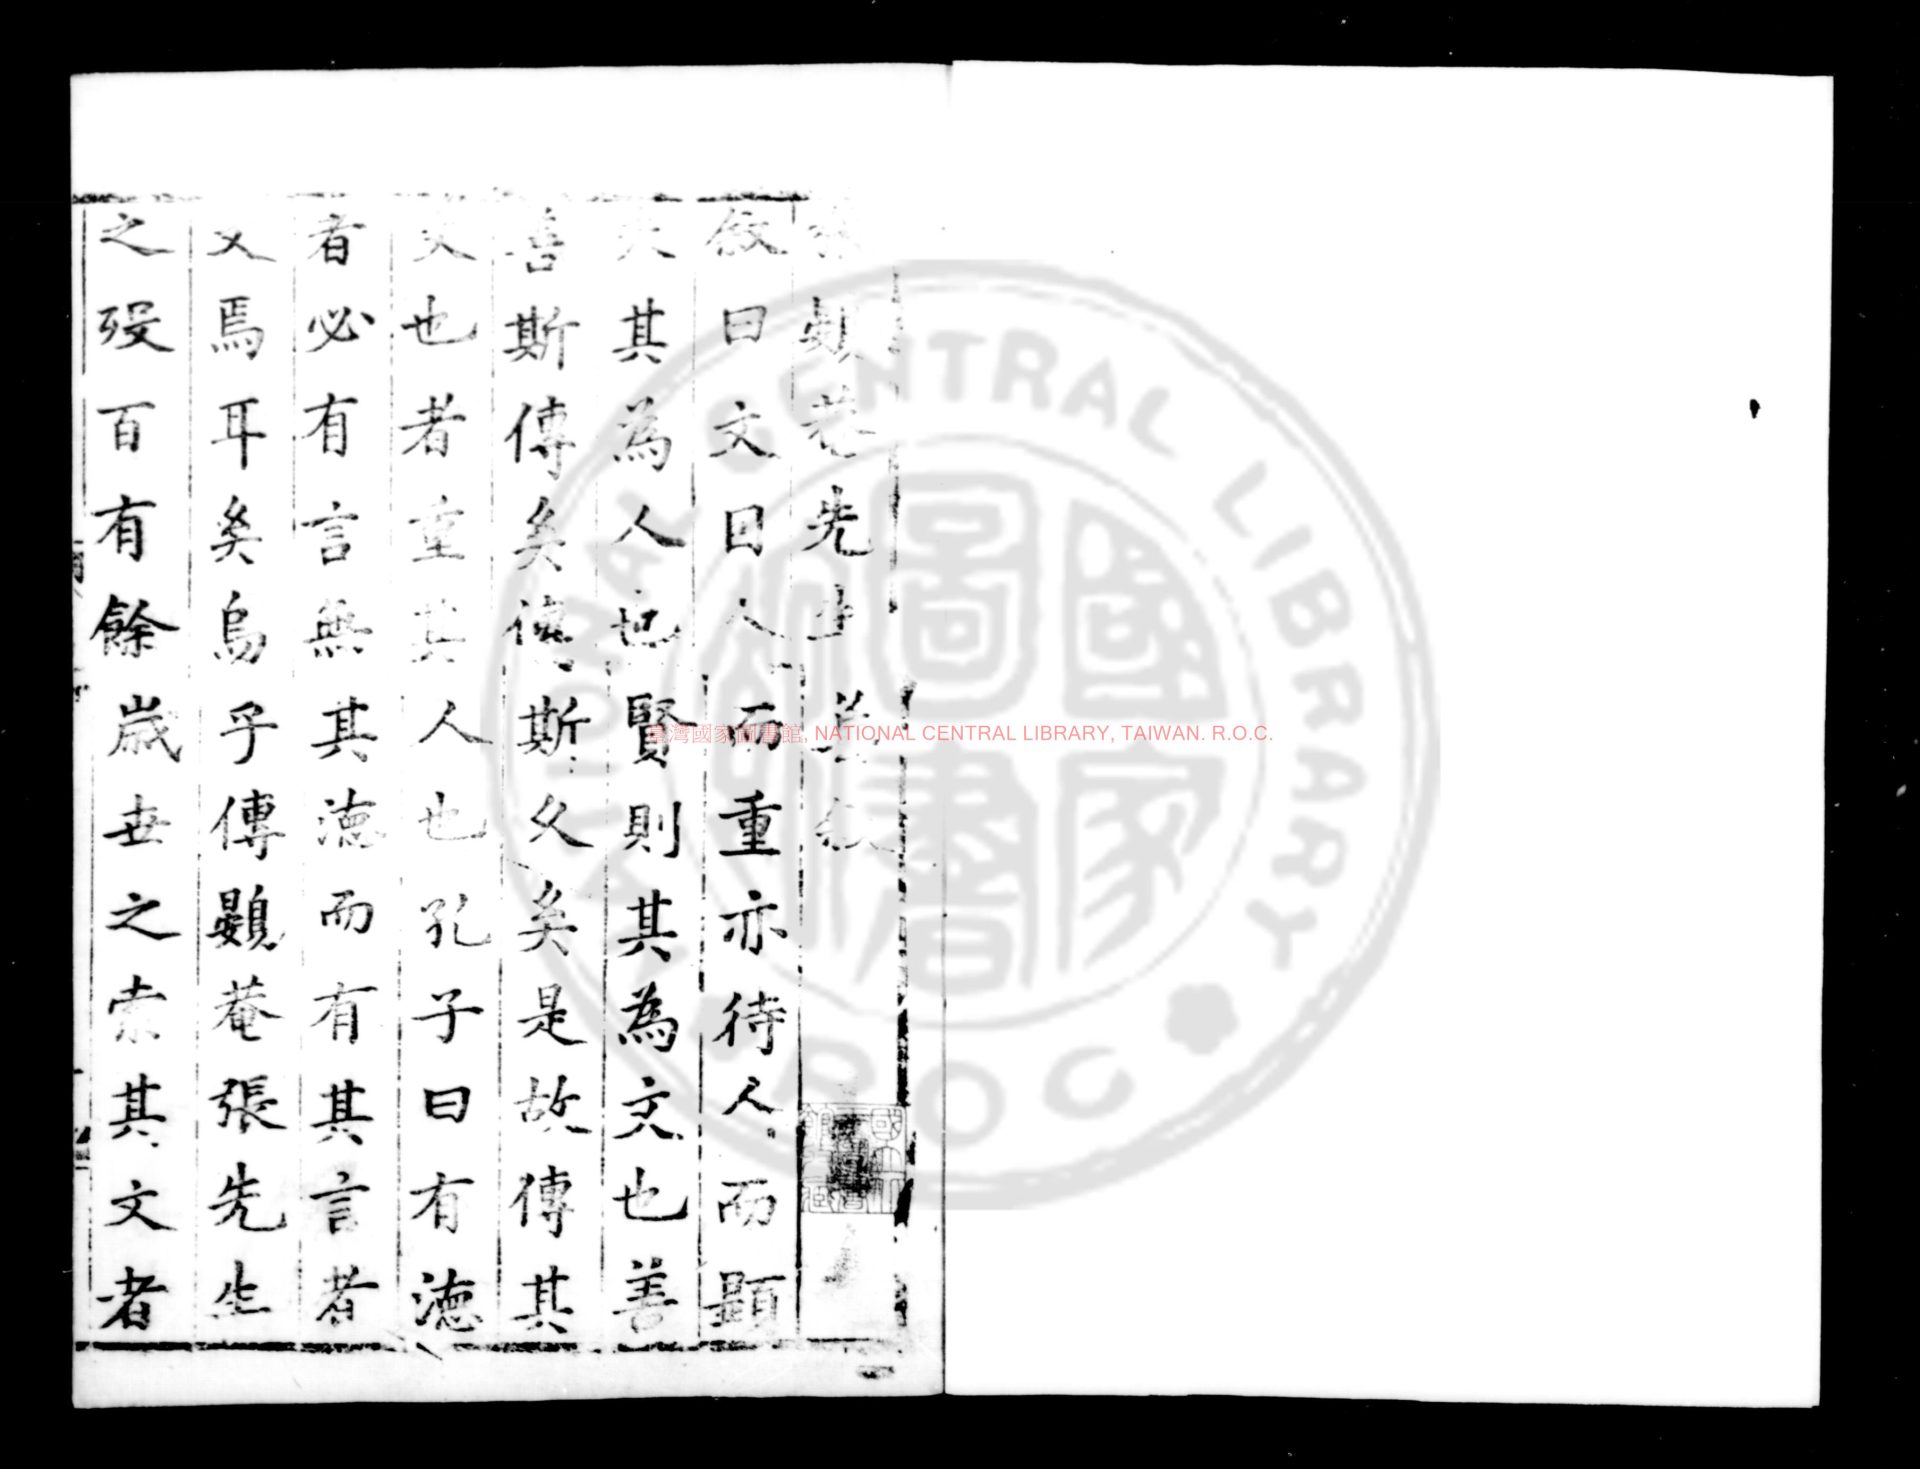 顯菴先生集敘
敘曰文因人而重亦待人而顯
夫其為人也賢則其為文也善
善斯傳矣傳斯久矣是故傳其
文也者重其人也孔子曰有德
者必有言無其德而有其言者
文焉耳矣烏乎傳顯菴張先生
之歿百有餘歲世之索其文者
臺灣國家圖書館, NATIONAL CENTRAL LIBRARY, TAIWAN. R.O.C.
NATIONAL CENTRAL LIBRARY
R.O.C
國家圖書館